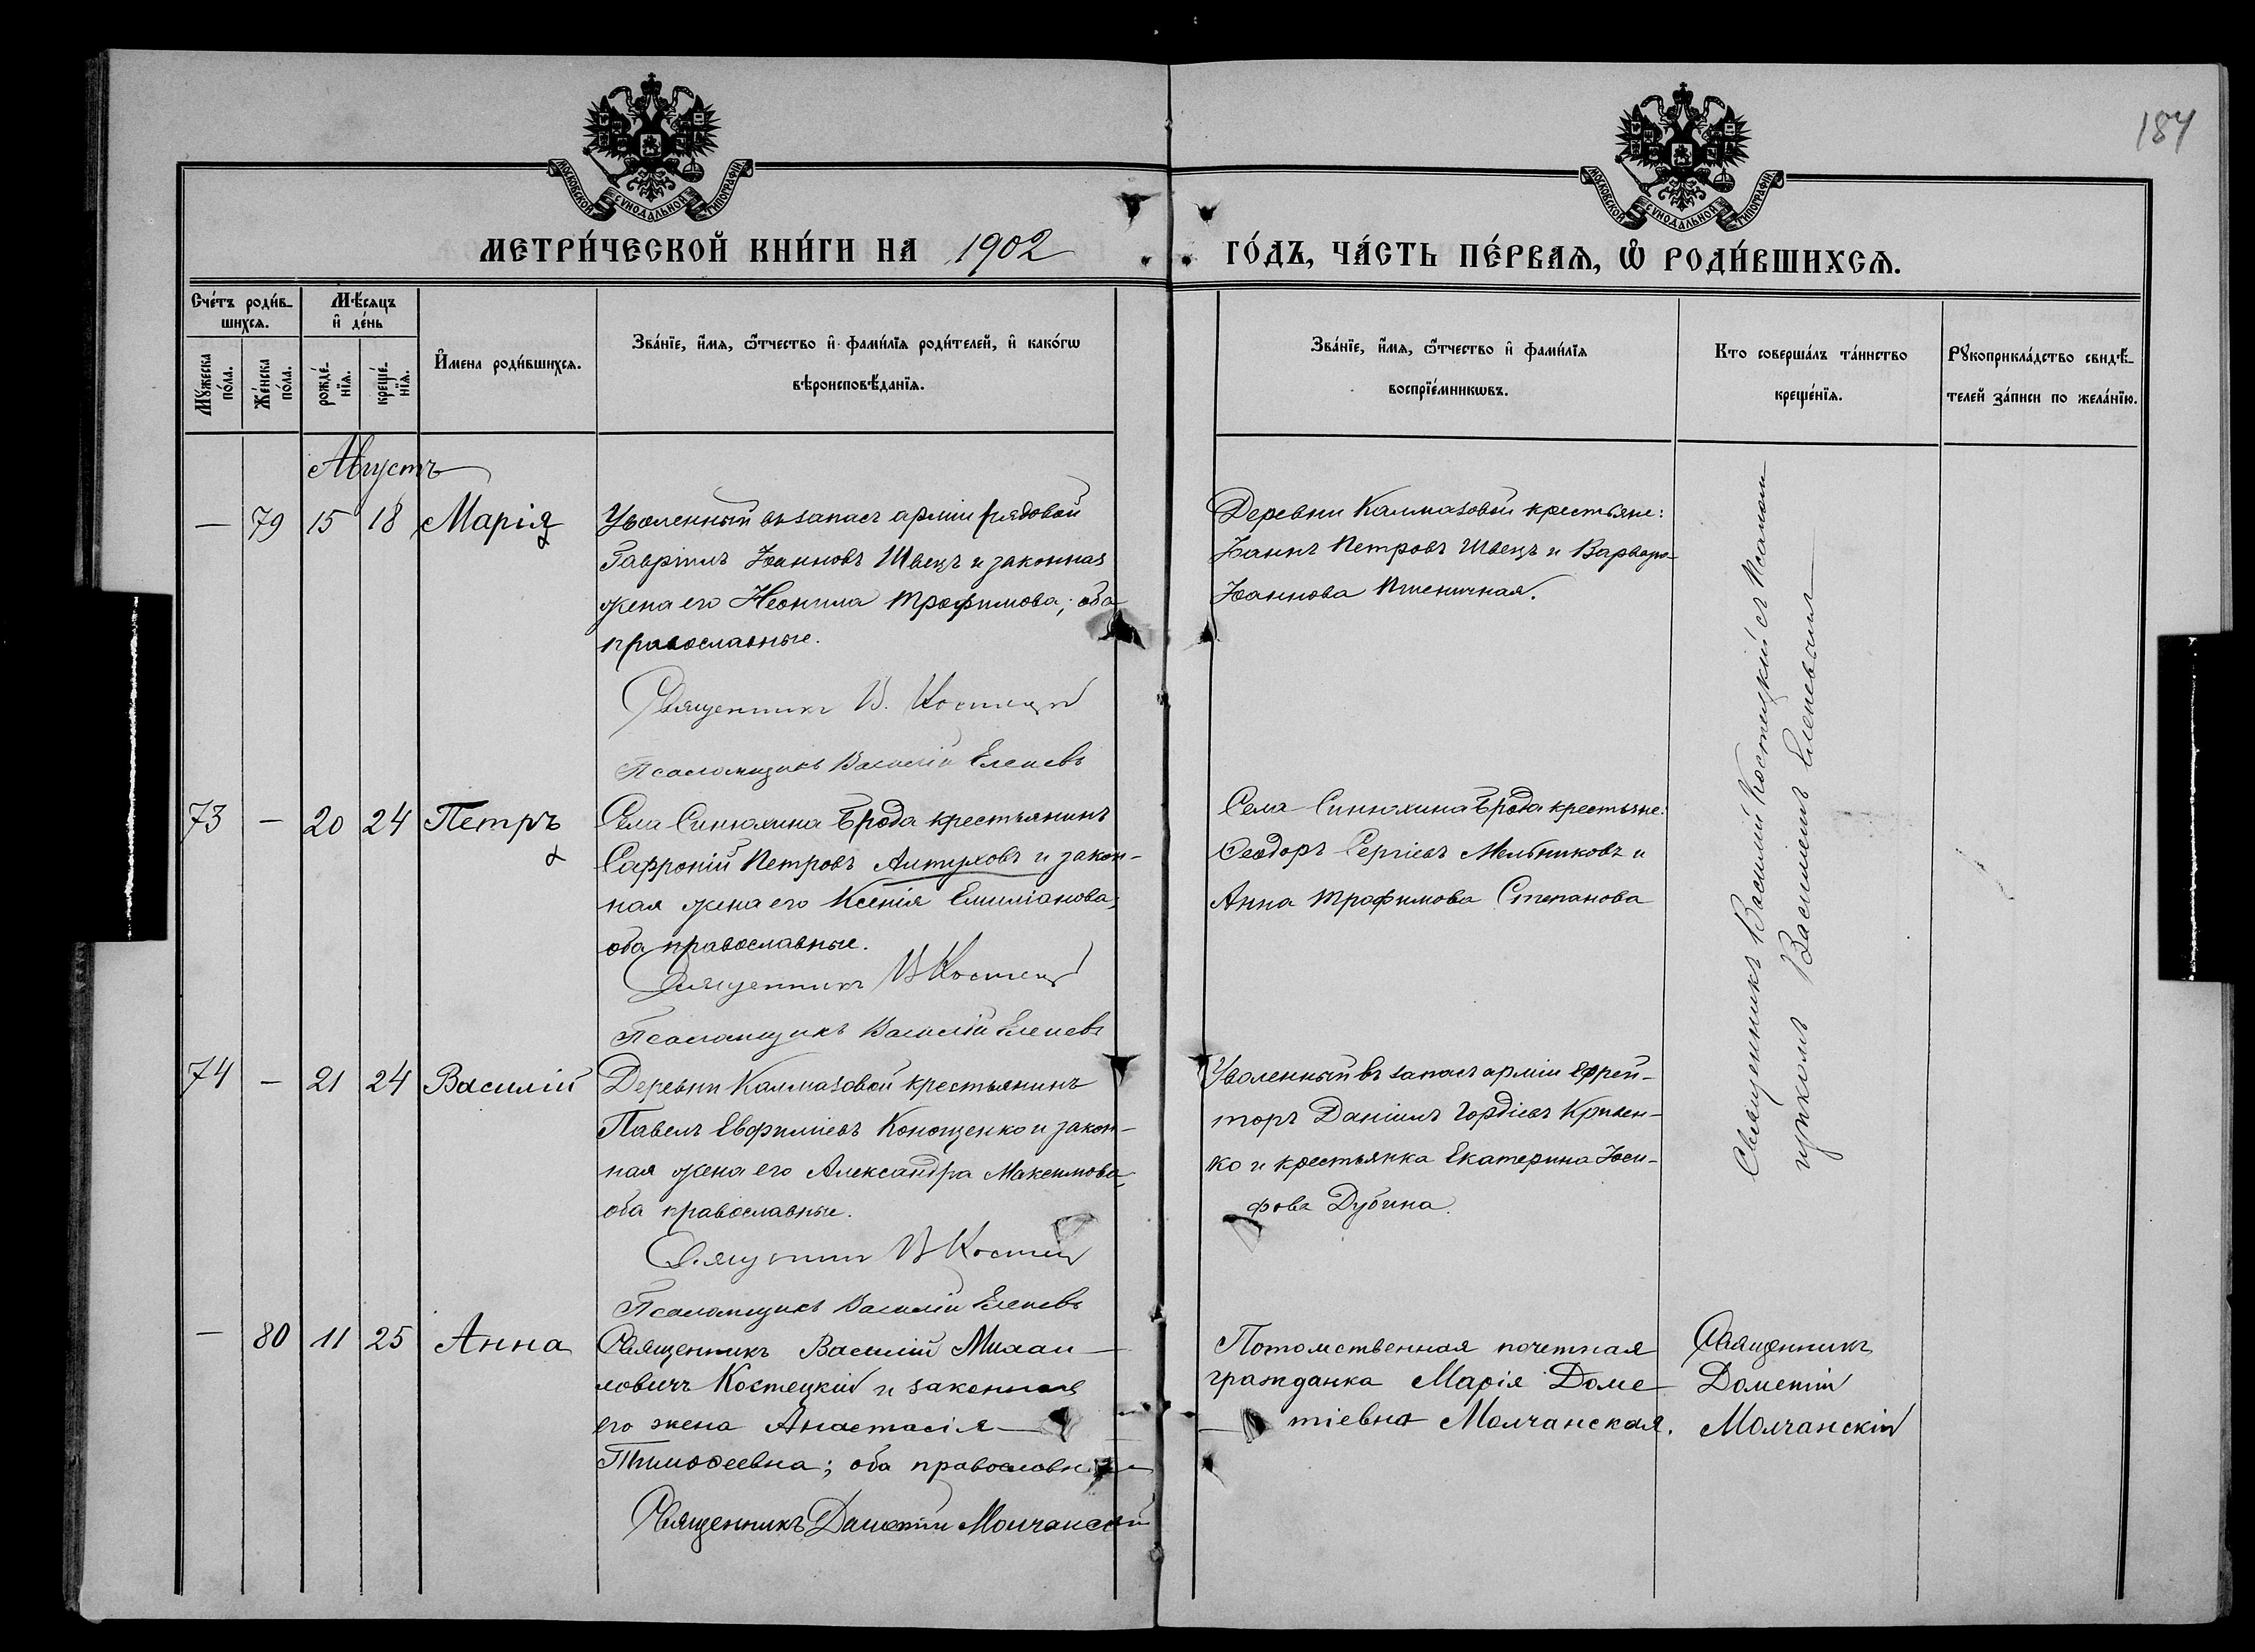 184
МОСКОВСКОЙ СѴНОДАЛЬНОЙ ТИПОГРАФІИ
МОСКОВСКОЙ СѴНОДАЛЬНОЙ ТИПОГРАФІИ
МЕТРИ́ЧЕСКОЙ КНИ́ГИ НА 1902
ГО́ДЪ, ЧА́СТЬ ПЕ́РВАѦ, Ѡ҆ РОДИ́ВШИХСѦ.
Сче́тъ роди́в-
шихсѧ.
Мѣ́сѧцъ
и҆ де́нь
Мꙋ́жеска
по́ла.
Же́нска
по́ла.
рожде́-
нїѧ.
креще́-
нїѧ.
И҆мена роди́вшихсѧ.
Зва́нїе, и҆́мѧ, ѻ҆́тчество и҆ фами́лїѧ роди́телей, и҆ како́гѡ
вѣроисповѣ́данїѧ.
Зва́нїе, и҆́мѧ, ѻ҆́тчество и҆ фами́лїѧ
воспрїе́мникѡвъ.
Кто соверша́лъ та́инство
креще́нїѧ.
Рꙋкоприкла́дство свидѣ́-
телей за́писи по жела́нїю.
Августъ
— 79 15 18 Марія
Уволенный въ запасъ арміи рядовой
Гавріилъ Іоанновъ Швецъ и законная
жена его Неонила Трофимова; оба
православные.
Священникъ В. Костецкій
Псаломщикъ Василій Еленевъ
Деревни Калмазовой крестьяне:
Іоаннъ Петровъ Швецъ и Варвара
Іоаннова Пшеничная.
73 — 20 24 Петръ
Села Синюхина Брода крестьянинъ
Сафроній Петровъ Алтуховъ и закон-
ная жена его Ксенія Емиліанова,
оба православные.
Священникъ В Костецкій
Псаломщикъ Василій Еленевъ
Села Синюхина Брода крестьяне:
Ѳеодоръ Сергіевъ Мельниковъ и
Анна Трофимова Степанова
74 — 21 24 Василій
Деревни Калмазовой крестьянинъ
Павелъ Евфиміевъ Конощенко и закон-
ная жена его Александра Максимова,
оба православные.
Священникъ В Костецкій
Псаломщикъ Василій Еленевъ
Уволенный въ запасъ арміи ефрей-
торъ Даніилъ Гордіевъ Кривен-
ко и крестьянка Екатерина Іоси-
фова Дубина.
Священникъ Василій Костецкій съ Псалом
щикомъ Василіемъ Еленевымъ
— 80 11 25 Анна
Священникъ Василій Михаи-
ловичъ Костецкій и законная
его жена Анастасія
Тимоѳеевна; оба православные
Священникъ Дометій Молчанскій
Потомственная почетная
гражданка Марія Доме
тіевна Молчанская.
Священникъ
Дометій
Молчанскій